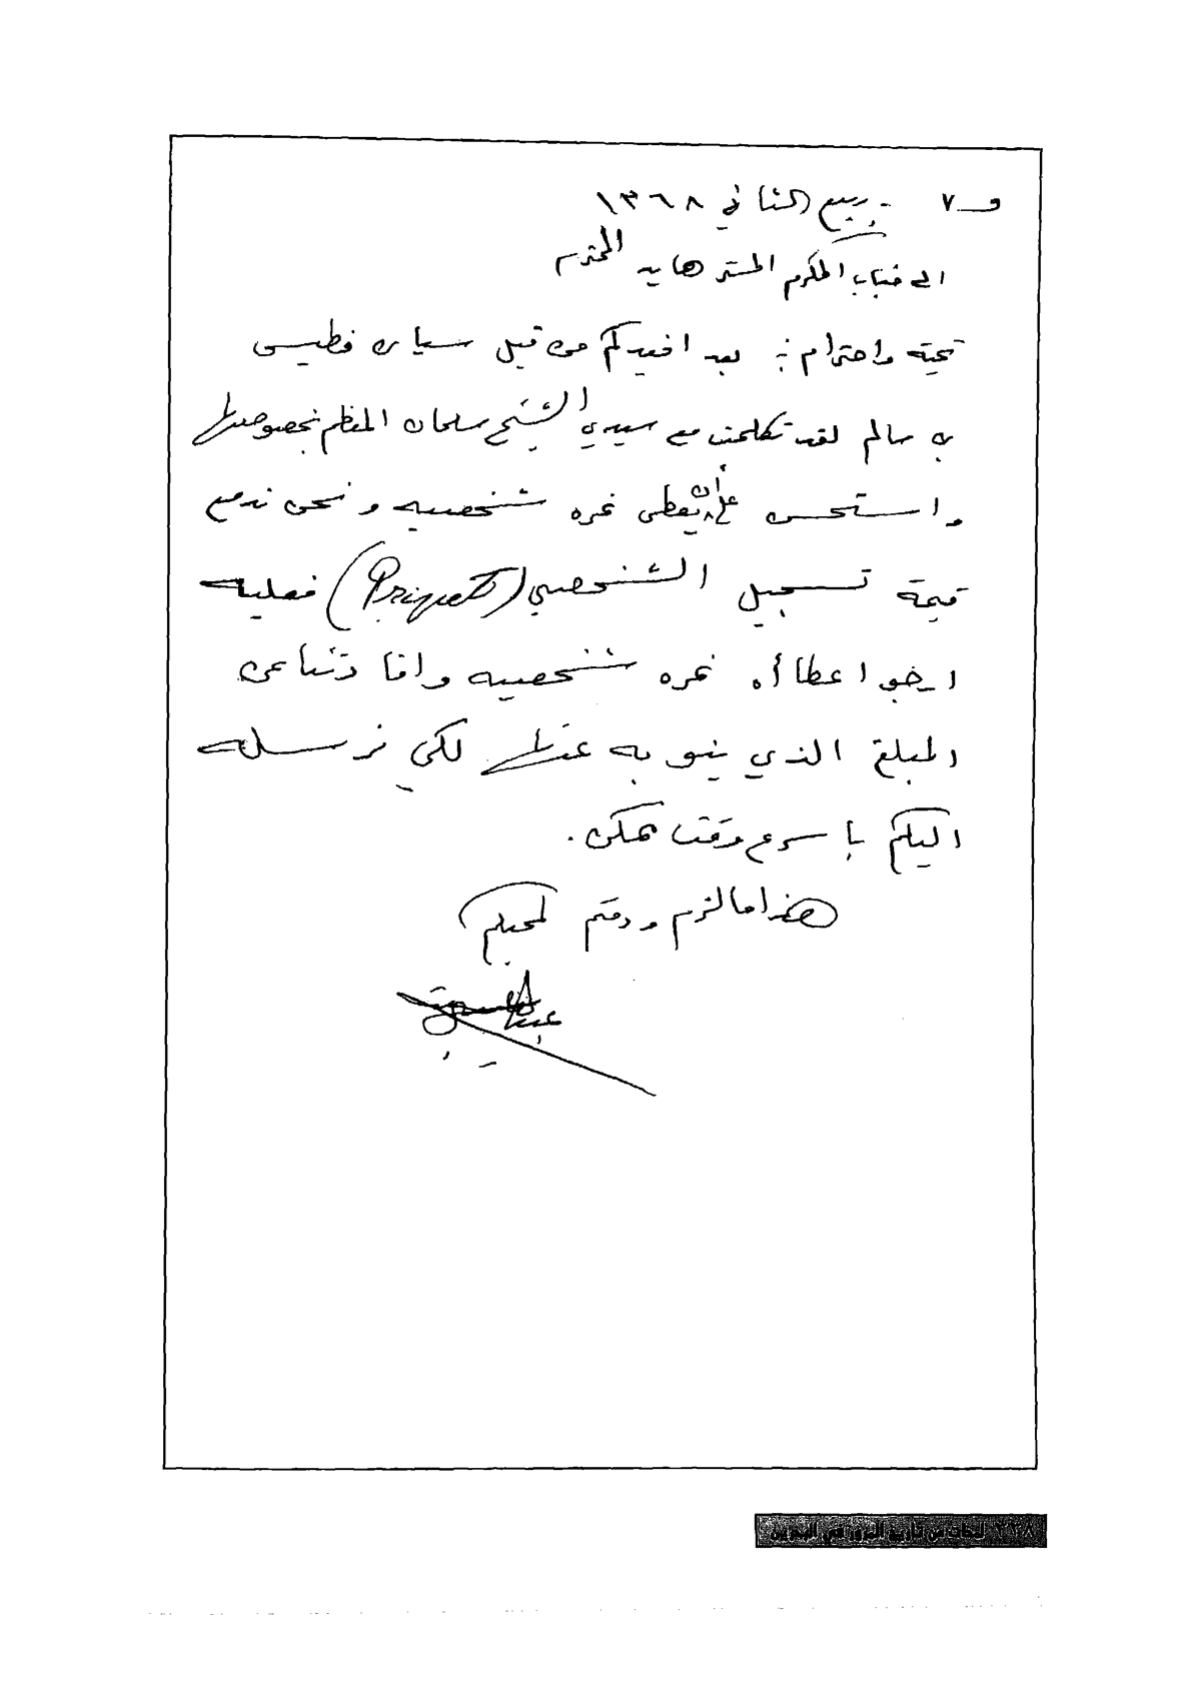 في ٧ ربيع الثاني ١٣٦٨
الى جناب المكرم المستر هايد المحترم
تحية واحترام :ـ بعد افيدكم من قبل سيارة فطيس
بن سالم لقد تكلمت مع سيدي الشيخ سلمان المعظم بخصوصها
واستحسن على أن يعطى نمره شخصيه ونحن ندفع
قيمة تسجيل الشخصي (Priquett) فعليه
ارجوا عطاأه نمره شخصيه وافادتنا عن
المبلغ الذي ينوبه عنها لكي نرسله
اليكم باسرع وقت ممكن.
هذا مالزم ودمتم لمحبكم
٢٣٨ لمحات من تاريخ المرور في البحرين